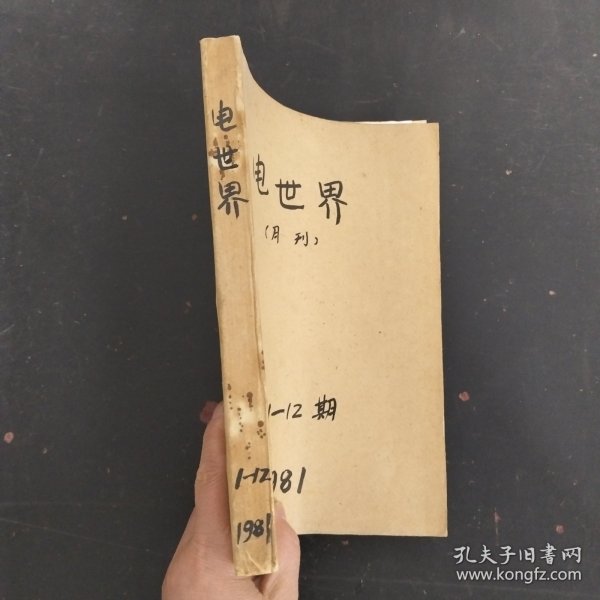 电世界
1-12
1981
电世界
(月刊)
1-12期
181
孔夫子旧书网
www.kongfz.com